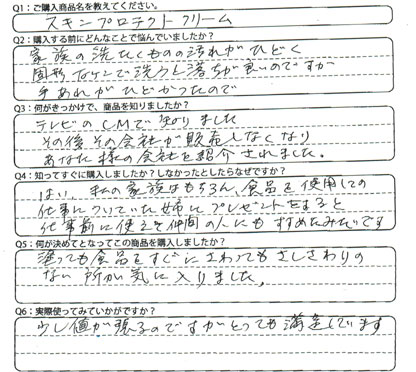 Q1：ご購入商品名を教えてください。
スキンプロテクトクリーム
Q2：購入する前にどんなことで悩んでいましたか？
家族の洗たくものの汚れがひどく
固形石ケンで洗うと落ちが良いのですが
手あれがひどかったので
Q3：何がきっかけで、商品を知りましたか？
テレビのCMで知りました
その後その会社が販売しなくなり
あなた様の会社を紹介されました。
Q4：知ってすぐに購入しましたか？しなかったとしたらなぜですか？
はい、私の家族はもちろん、食品を使用しての
仕事についていた姉にプレゼントをすると
仕事前に使え仲間の人にもすすめたみたいです
Q5：何が決めてとなってこの商品を購入しましたか？
塗っても食品をすぐにさわってもさしさわりの
ない所が気に入りました。
Q6：実際使ってみていかがですか？
少し値が張るのですがとっても満足しています